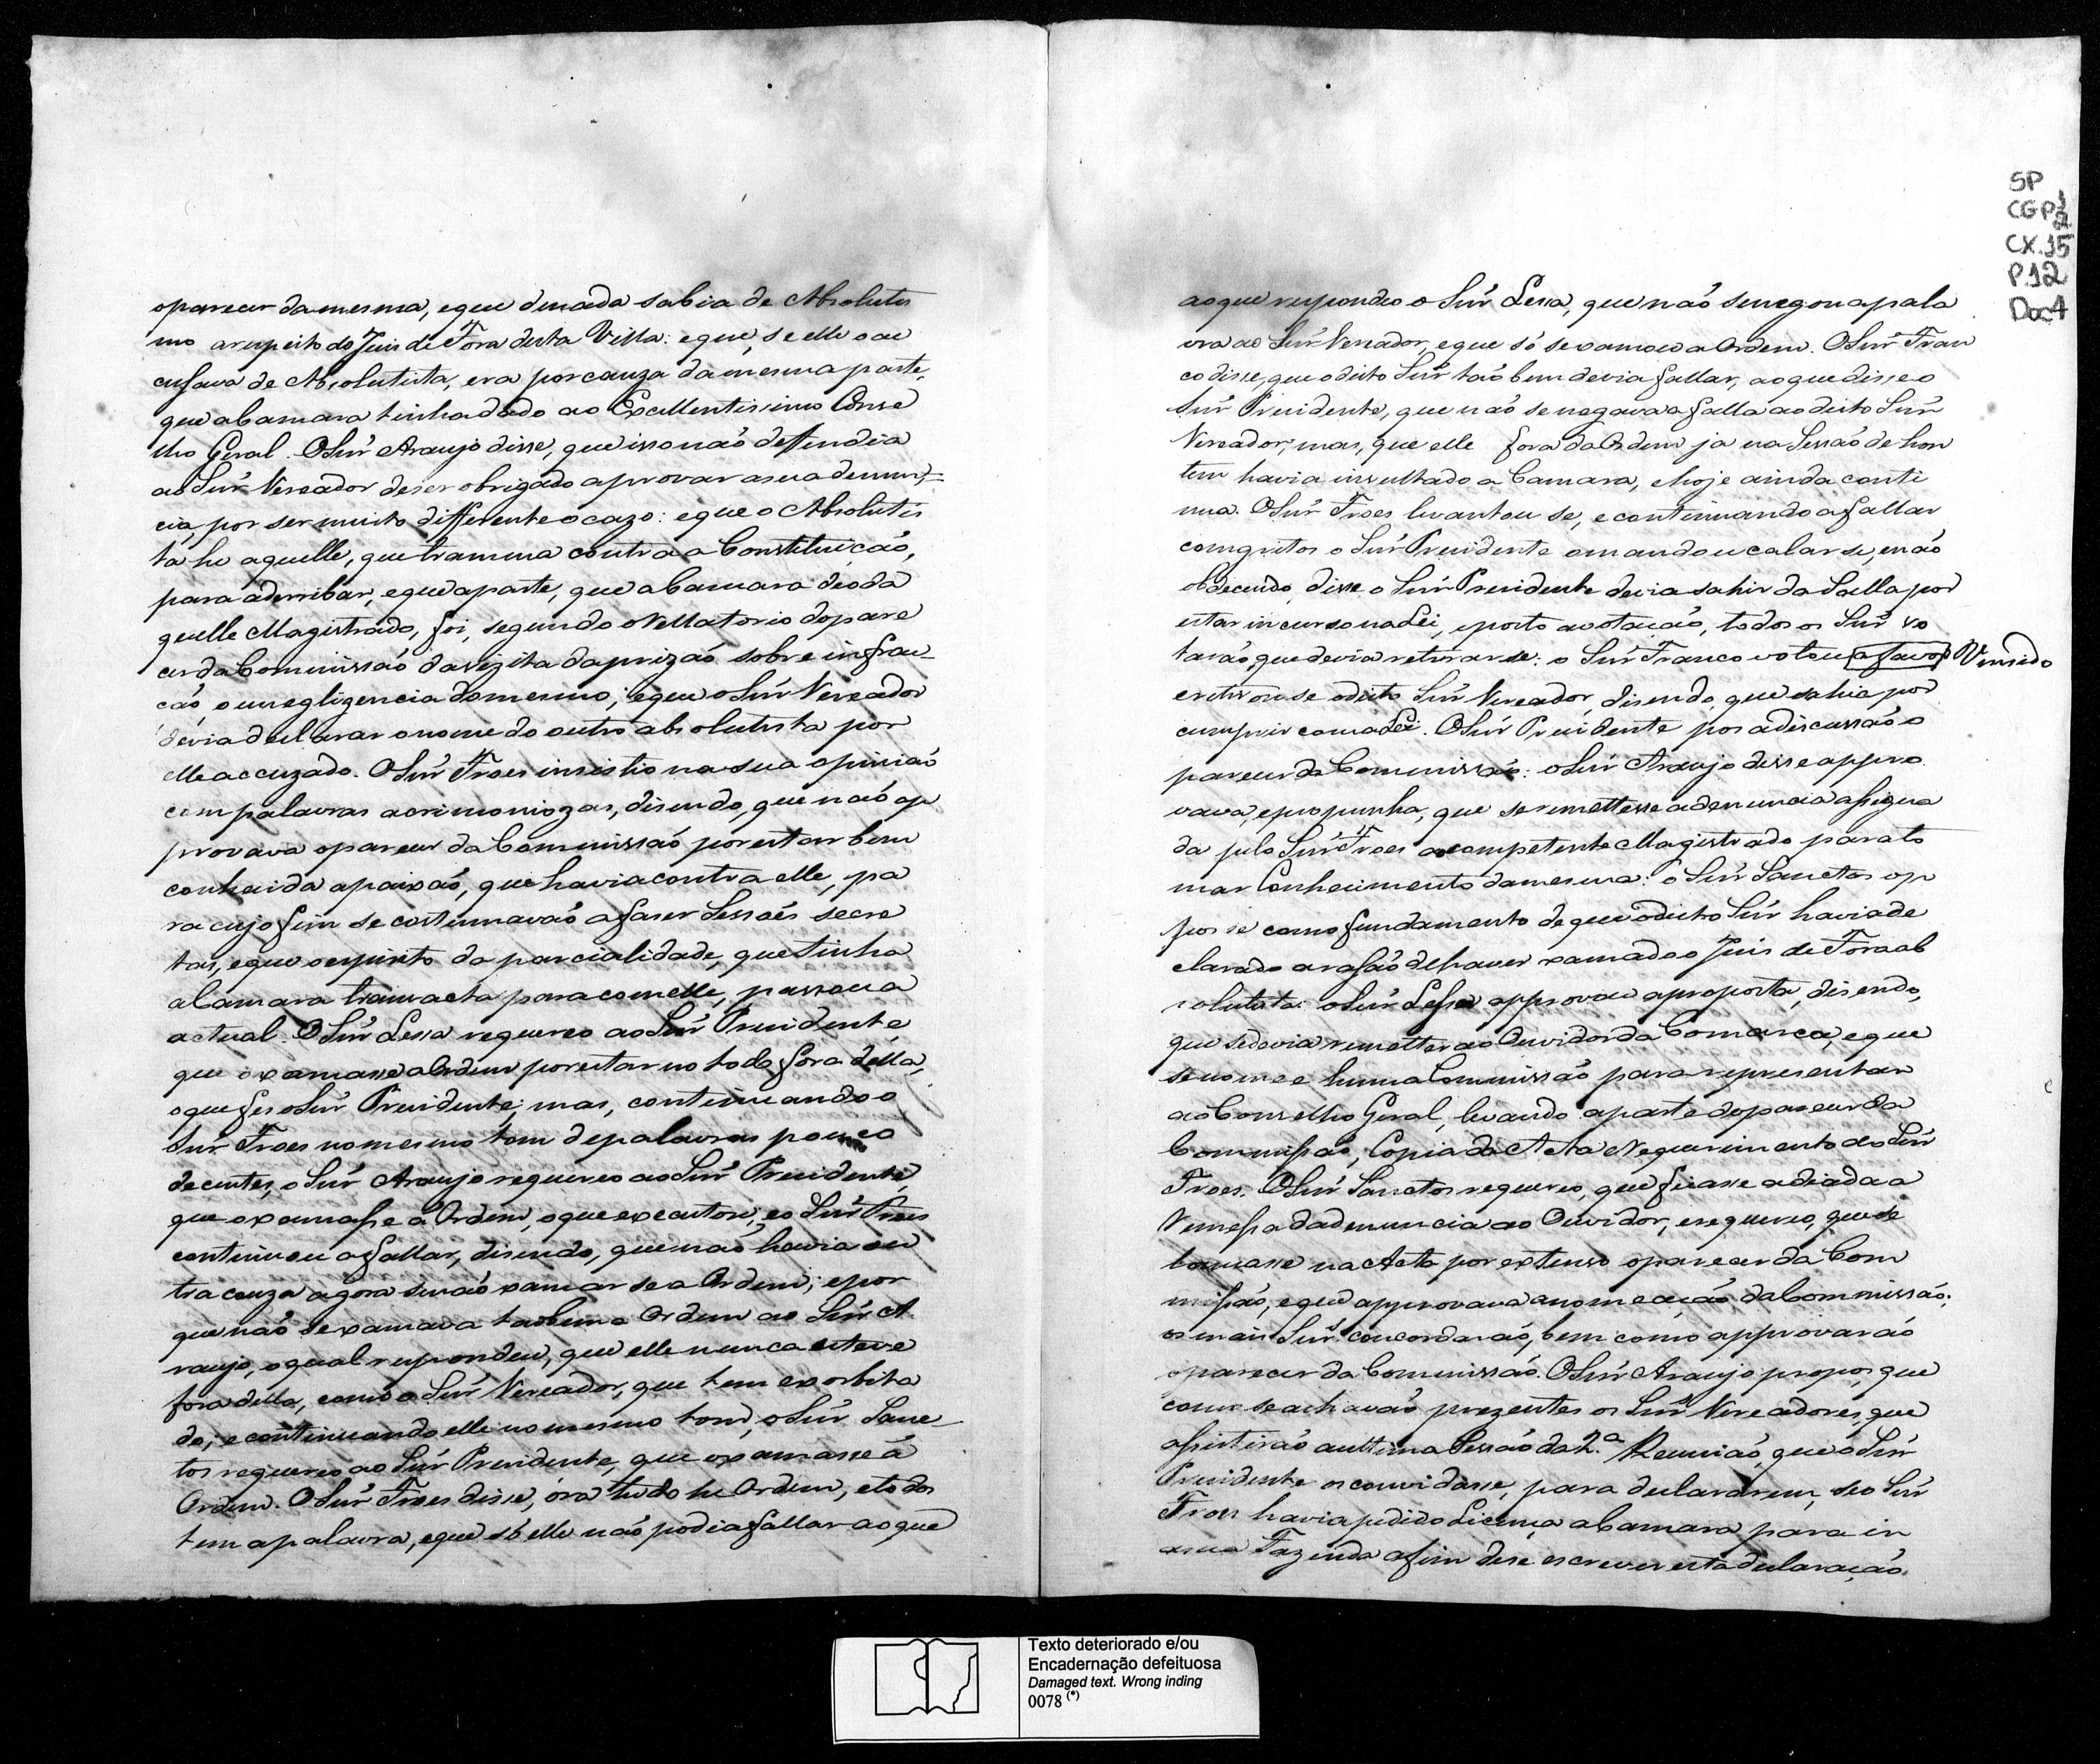 oparecer da mesma, eque denada sabia de Absolutis
mo arespeito do Juis de Fora desta Villa: eque, se elle o ac
cusava de Absolutista, era porcauza damesma parte,
que aCamara tinhadado ao Excellentissimo Conse
lho Geral. OSnr̃ Araujo disse, que issonaõ deffendia
aoSnr̃ Vereador deser obrigado aprovar asua denun=
cia, por ser muito differente ocazo: eque o Absolutis
ta he aquelle, que tramma contra a Constituiçaõ,
para aderribar, eque aparte, que aCamara deo dá
quelle Magistrado, foi, segundo oRellatorio dopare
cer da Commissaõ davezita daprizaõ sobre infrac
çaõ, ounegligencia domesmo; eque oSnr̃ Vereador
devia declarar onome do outro absolutista por
elle accuzado. OSnr̃ Froes insistio na sua opiniaõ
com palavras acrimoniozas, disendo, que naõ ap
provava oparecer da Commissaõ porestar bem
conhecida apaixaõ, que havia contra elle, pa
ra cujo fim se costumavaõ afaser Sessoẽs secre
tas, eque oespirito da parcialidade, que tinha
aCamara transacta para comelle, passou a
actual. OSnr̃ Lessa requereo aoSnr̃ Presidente,
que oxamasse aOrdem porestar no todo fora della,
oque fes oSnr̃ Presidente; mas, continuando o
Snr̃ Froes no mesmo tom depalavras pouco
decentes, o Snr̃ Araujo requereo aoSnr̃ Presidente,
que oxamasse á Ordem, oque executou; eo Snr̃ Froes
continuou afallar, disendo, que naõ havia ou
tra couza agora senaõ xamar se a Ordem; epor
que naõ sexamava taõbem a Ordem ao Snr̃ A
raujo, oqual respondeu, que elle nunca esteve
fora della, como o Snr̃ Vereador, que tem exorbita
do; e continuando elle no mesmo tom, oSnr̃ Sanc
tos requereo ao Snr̃ Presidente, que oxamasse á
Ordem. OSnr̃ Froes disse, óra tudo he Ordem, etodos
tem apalavra, eque só elle naõ podia fallar aoque
aoque respondeo o Snr̃ Lessa, que naõ senegou apala
vra ao Snr̃ Vereador, eque só sexamou a Ordem. OSnr̃ Fran
co disse, que odicto Snr̃ taõbem devia fallar, aoque disse o
Snr̃ Presidente, que naõ se negava a falla aodicto Snr̃
Vereador; mas, que elle fora da Ordem ja na Sessaõ de hon
tem havia insultado a Camara, ehoje ainda conti
nua. OSnr̃ Froes levantou se, e continuando afallar
comgritos o Snr̃ Presidente o mandou calar se, enaõ
obdecendo, disse o Snr̃ Presidente devia sahir da Salla por
estar incurso na Lei, eposto avotaçaõ, todos os Snr̃ vo
taraõ, que devia retirar se: o Snr̃ Franco votou a favor Vensido
eretirou se odicto Snr̃ Vereador, disendo, que sahia por
cumprir com aLei. OSnr̃ Presidente pos adiscussaõ o
parecer da Commissaõ: oSnr̃ Araujo disse appro
vava, epropunha, que seremettesse adenuncia assigna
da pelo Snr̃ Froes ao competente Magistrado parato
mar Conhecimento damesma: o Snr̃ Sanctos op
pos se como fundamento de que odicto Snr̃ haviade
clarado arasaõ dehaver xamado o Juis de Fora ab
solutista: oSnr̃ Lessa approvou aproposta, disendo,
que sedevia remetter ao Ouvidor da Comarca, eque
se nomee huma Commissaõ para representar
ao Conselho Geral, levando aparte doparecer da
Commissaõ, Copia da Acta Requerimento do Snr̃
Froes. OSnr̃ Sanctos requereo, que ficasse adiada a
Remessa dadenuncia ao Ouvidor, erequereo, que se
lancasse na Acta por extenso oparecer da Com
missaõ, eque approvava anomeaçaõ daCommissaõ;
os mais Snr̃s concordaraõ, bem como approvaraõ
oparecer da Commissaõ. OSnr̃ Araujo propos, que
como se achavaõ prezentes os Snr̃ Vereadores, que
assistiraõ aultima Sessaõ da 2.ª Reuniaõ, que o Snr̃
Presidente os convidasse, para declararem, se o Snr̃
Froes havia pedido Licença aCamara para ir
asua Fazenda afim dese escrever esta declaraçaõ.
SP
CGP1
2
CX.15
P.12
Doc4
Texto deteriorado e/ou
Encadernação defeituosa
Damaged text. Wrong inding
0078 (*)